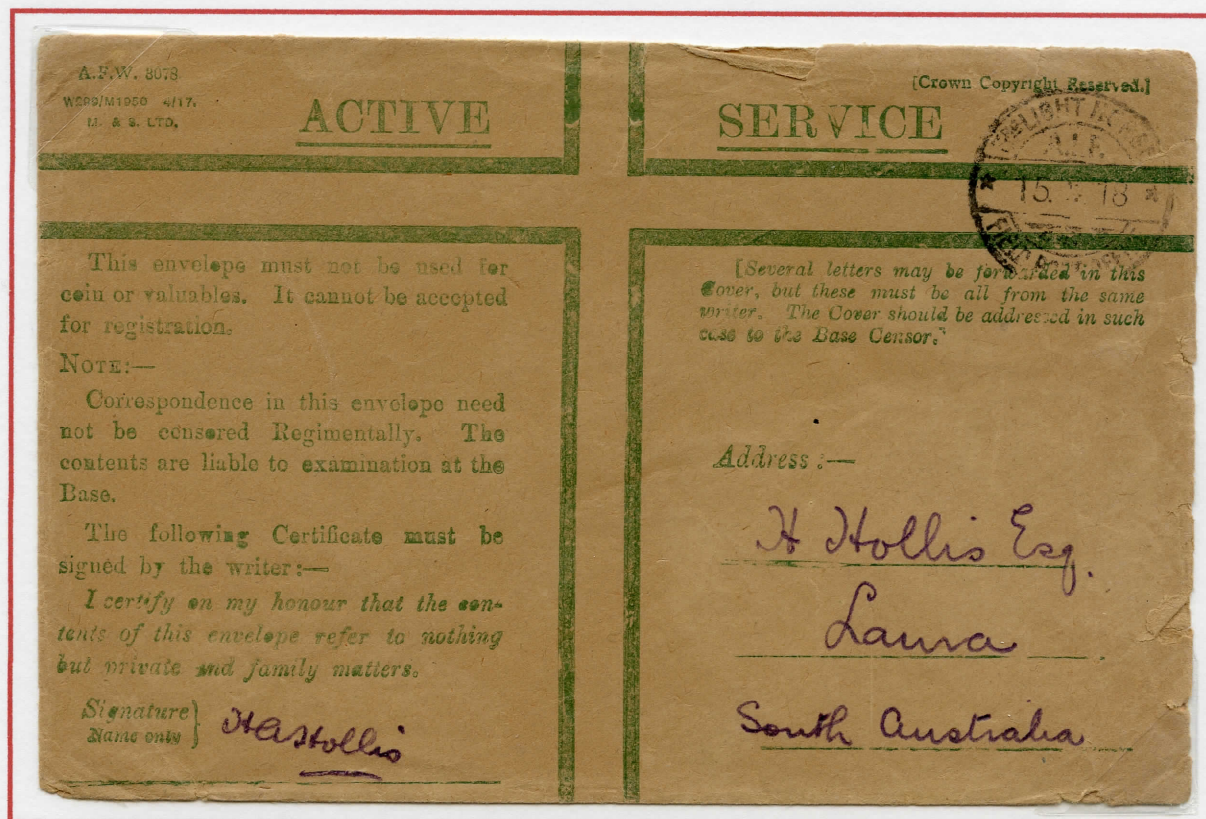 A.F.W. 3078.
M. & S. LTD.
ACTIVE
SERVICE
[Crown Copyright Reserved.]
LIGHT HORSE
A.I.F.
15. 18
FIELD POST OFFICE
This envelope must not be used for
coin or valuables. It cannot be accepted
for registration.
NOTE:—
Correspondence in this envelope need
not be censored Regimentally. The
contents are liable to examination at the
Base.
The following Certificate must be
signed by the writer:—
I certify on my honour that the con-
tents of this envelope refer to nothing
but private and family matters.
Signature }
Name only
H A Hollis
[Several letters may be forwarded in this
Cover, but these must be all from the same
writer. The Cover should be addressed in such
case to the Base Censor.]
Address:—
H Hollis Esq.
Laura
South Australia